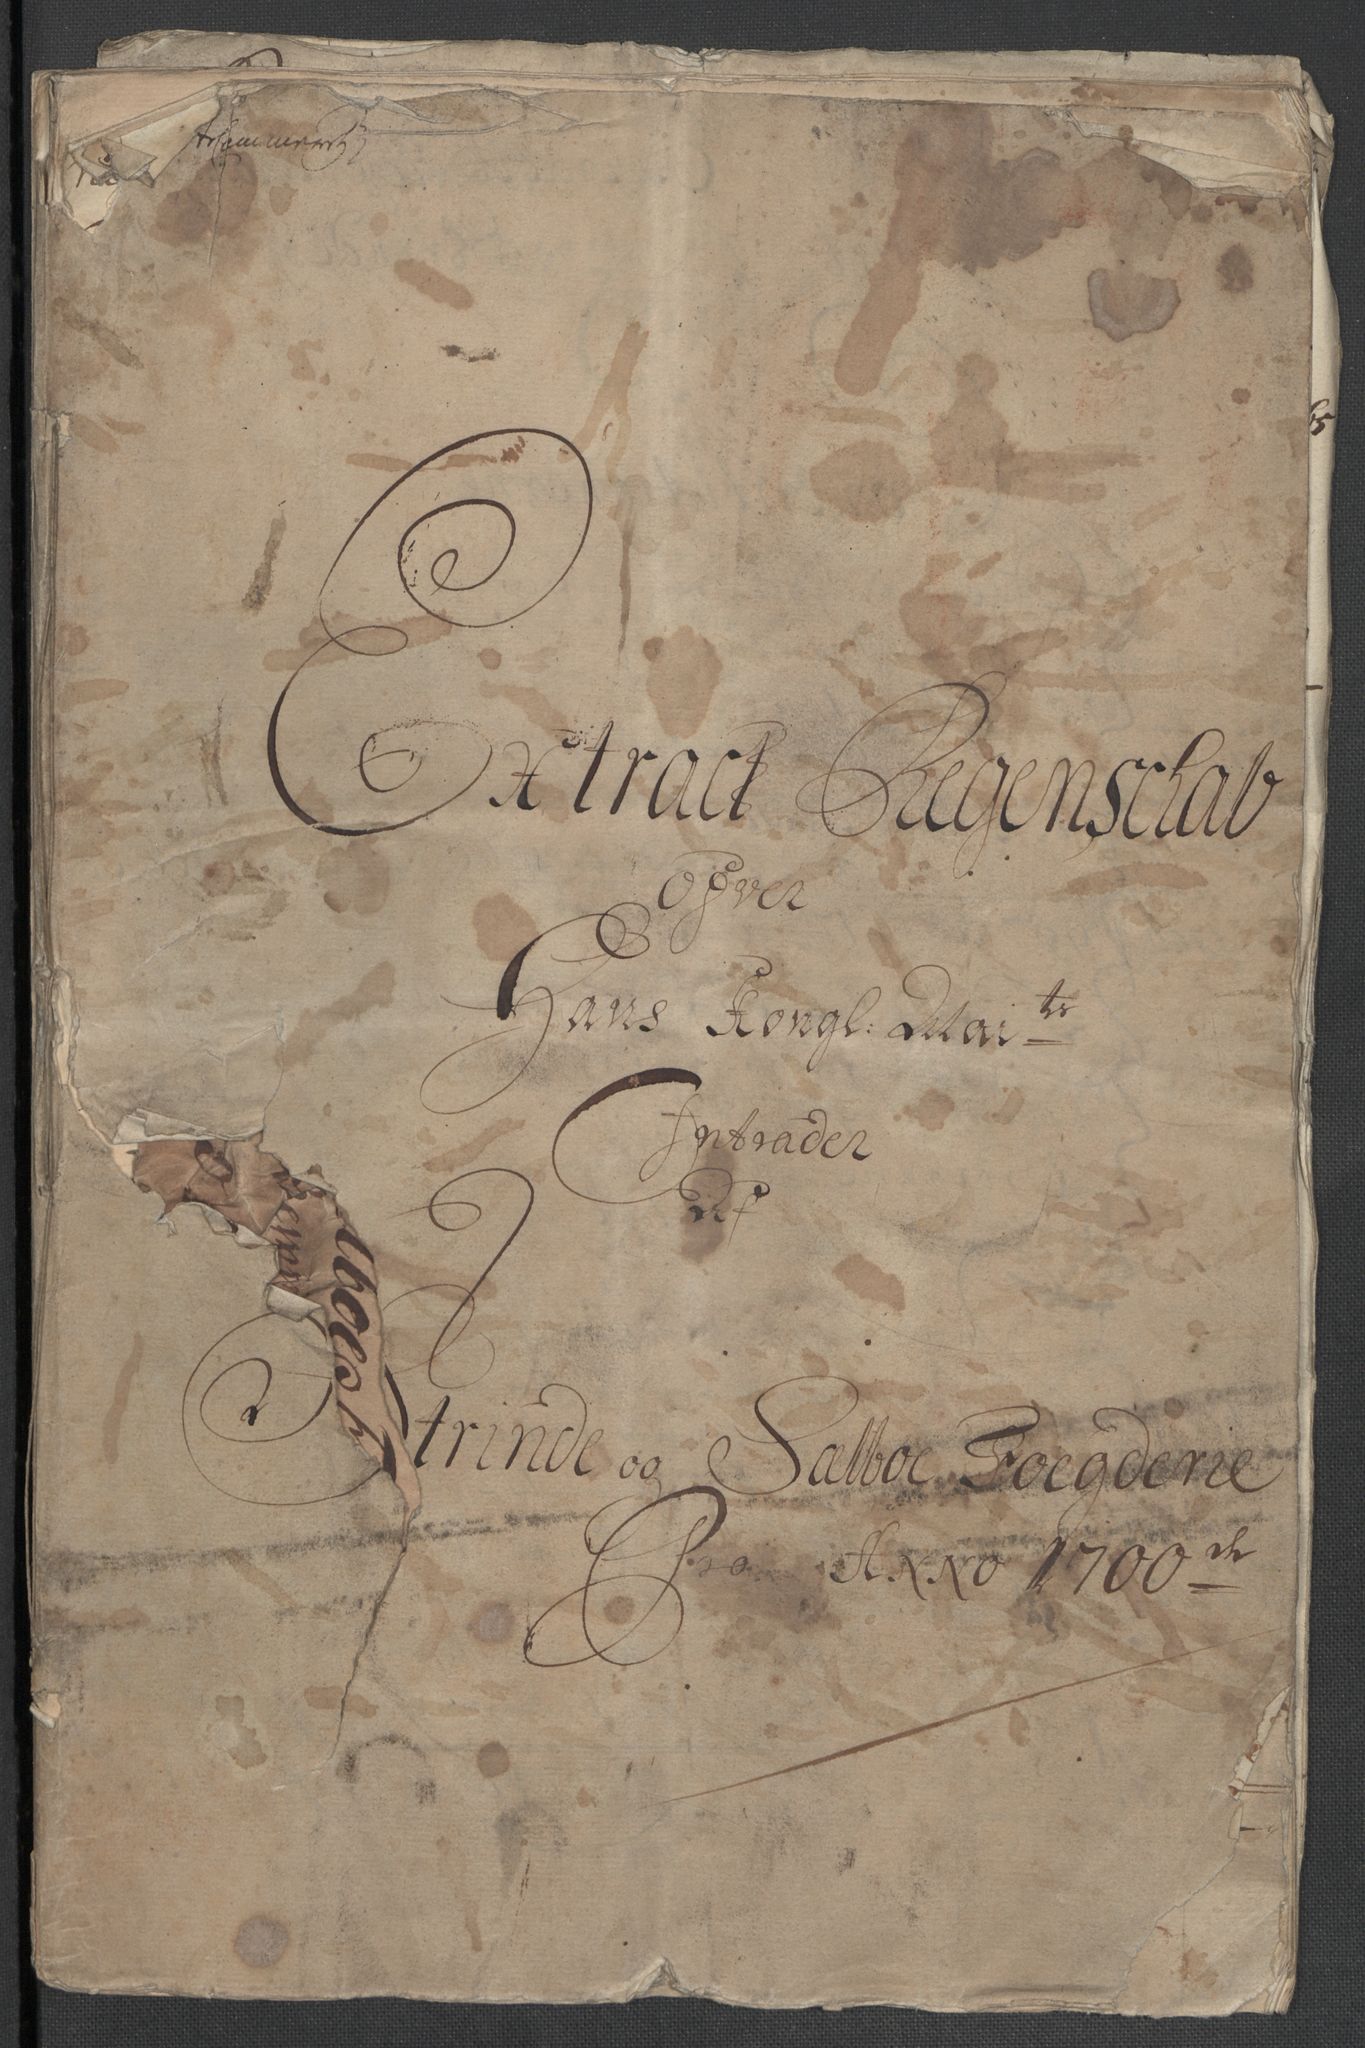 Extract Regenschab
ofver
Hans Kongl: Maits
Intrader
Af
Strinde og Sælboe Foegderie
Pro Anno 1700de
lboes